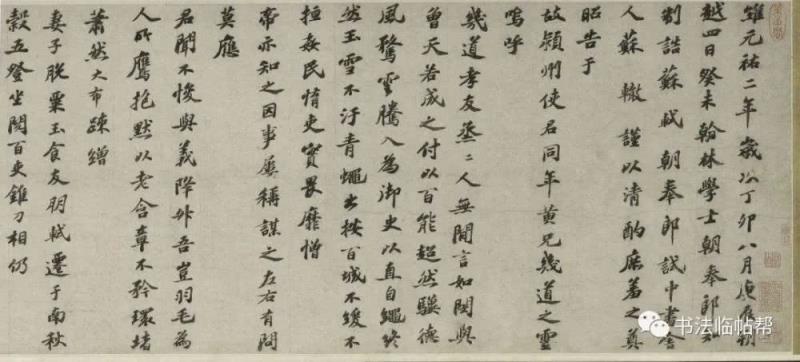 維元祐二年歲次丁卯八月庚辰朔
越四日癸未翰林學士朝奉郎知
制誥蘇軾朝奉郎試中書舍
人蘇轍謹以清酌庶羞之奠
昭告于
故潁州使君同年黃兄幾道之靈
嗚呼
幾道孝友烝二人無間言如閔與
曾天若成之付以百能超然驥德
風騖雲騰入為御史以直自繩終
然玉雪不汙青蠅出按百城不緩不
搄姦民惰吏實畏靡憎
帝亦知之因事屢稱謀之左右有問
莫應
君聞不悛與義降升吾豈羽毛為
人所鷹抱默以老含章不矜環堵
蕭然大布疎繒
妻子脫粟玉食友朋軾遷于南秋
穀五登坐閱百吏錐刀相仍
书法临帖帮